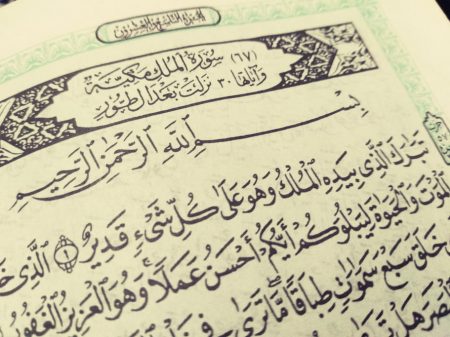 الجزء التاسع والعشرون
(٦٧) سورة الملك مكية
وآياتها ٣٠ نزلت بعد الطور
بِسْمِ ٱللَّهِ ٱلرَّحْمَٰنِ ٱلرَّحِيمِ
تَبَٰرَكَ ٱلَّذِى بِيَدِهِ ٱلْمُلْكُ وَهُوَ عَلَىٰ كُلِّ شَىْءٍ قَدِيرٌ ١ ٱلَّذِى
ٱلْمَوْتَ وَٱلْحَيَوٰةَ لِيَبْلُوَكُمْ أَيُّكُمْ أَحْسَنُ عَمَلًا وَهُوَ ٱلْعَزِيزُ ٱلْغَفُورُ
خَلَقَ سَبْعَ سَمَٰوَٰتٍ طِبَاقًا مَّا تَرَىٰ فِى
ٱلْبَصَرَ هَلْ